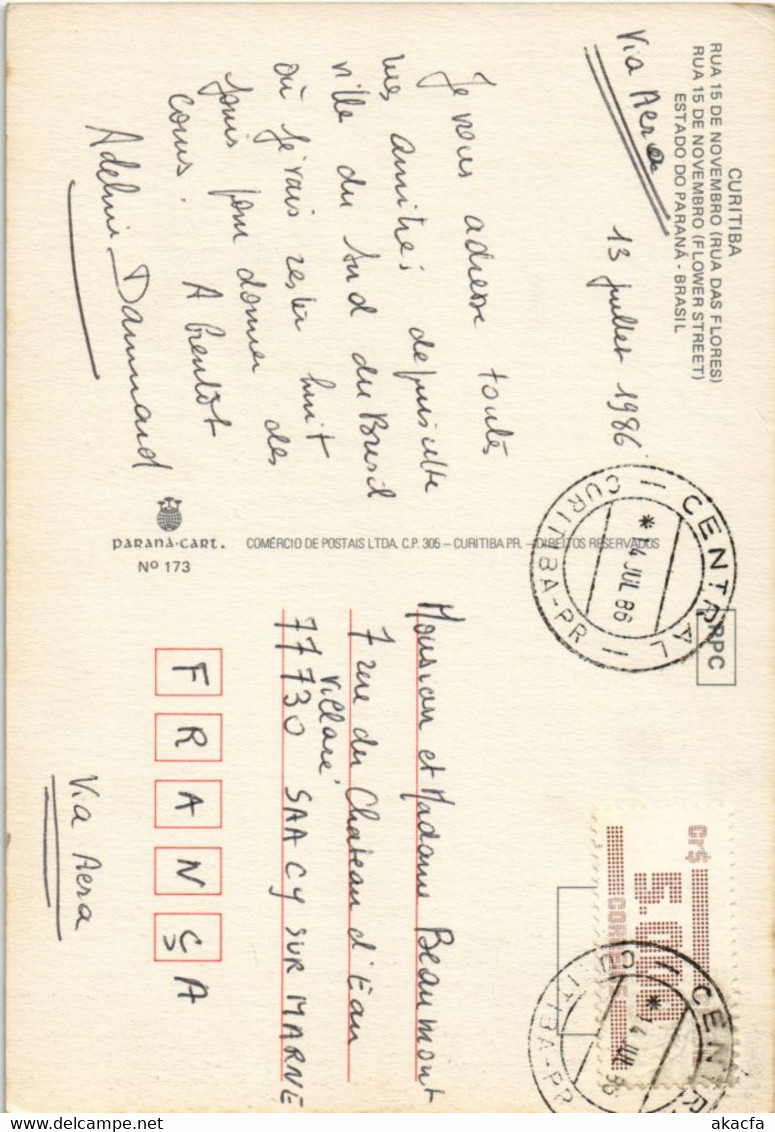 CURITIBA
RUA 15 DE NOVEMBRO (RUA DAS FLORES)
RUA 15 DE NOVEMBRO (FLOWER STREET)
ESTADO DO PARANÁ - BRASIL
Via Aerea
13 juillet 1986
Je vous adresse toutes
mes amitiés depuis cette
ville du Sud du Brésil
où je vais rester huit
jours pour donner des
cours. A bientôt
Adeline Daumard
PARANÁ-CART.
Nº 173
COMÉRCIO DE POSTAIS LTDA. C.P. 305 – CURITIBA PR. – DIREITOS RESERVADOS
CENTRAL
14 JUL 86
CURITIBA-PR
RPC
Cr$
5.000
CORREIO
CENTR
14 JUL 86
CURITIBA-PR
Monsieur et Madame Beaumont
7 rue du Chateau d'Eau
Villaré
77730 SAACY SUR MARNE
FRANÇA
Via Aerea
akacfa